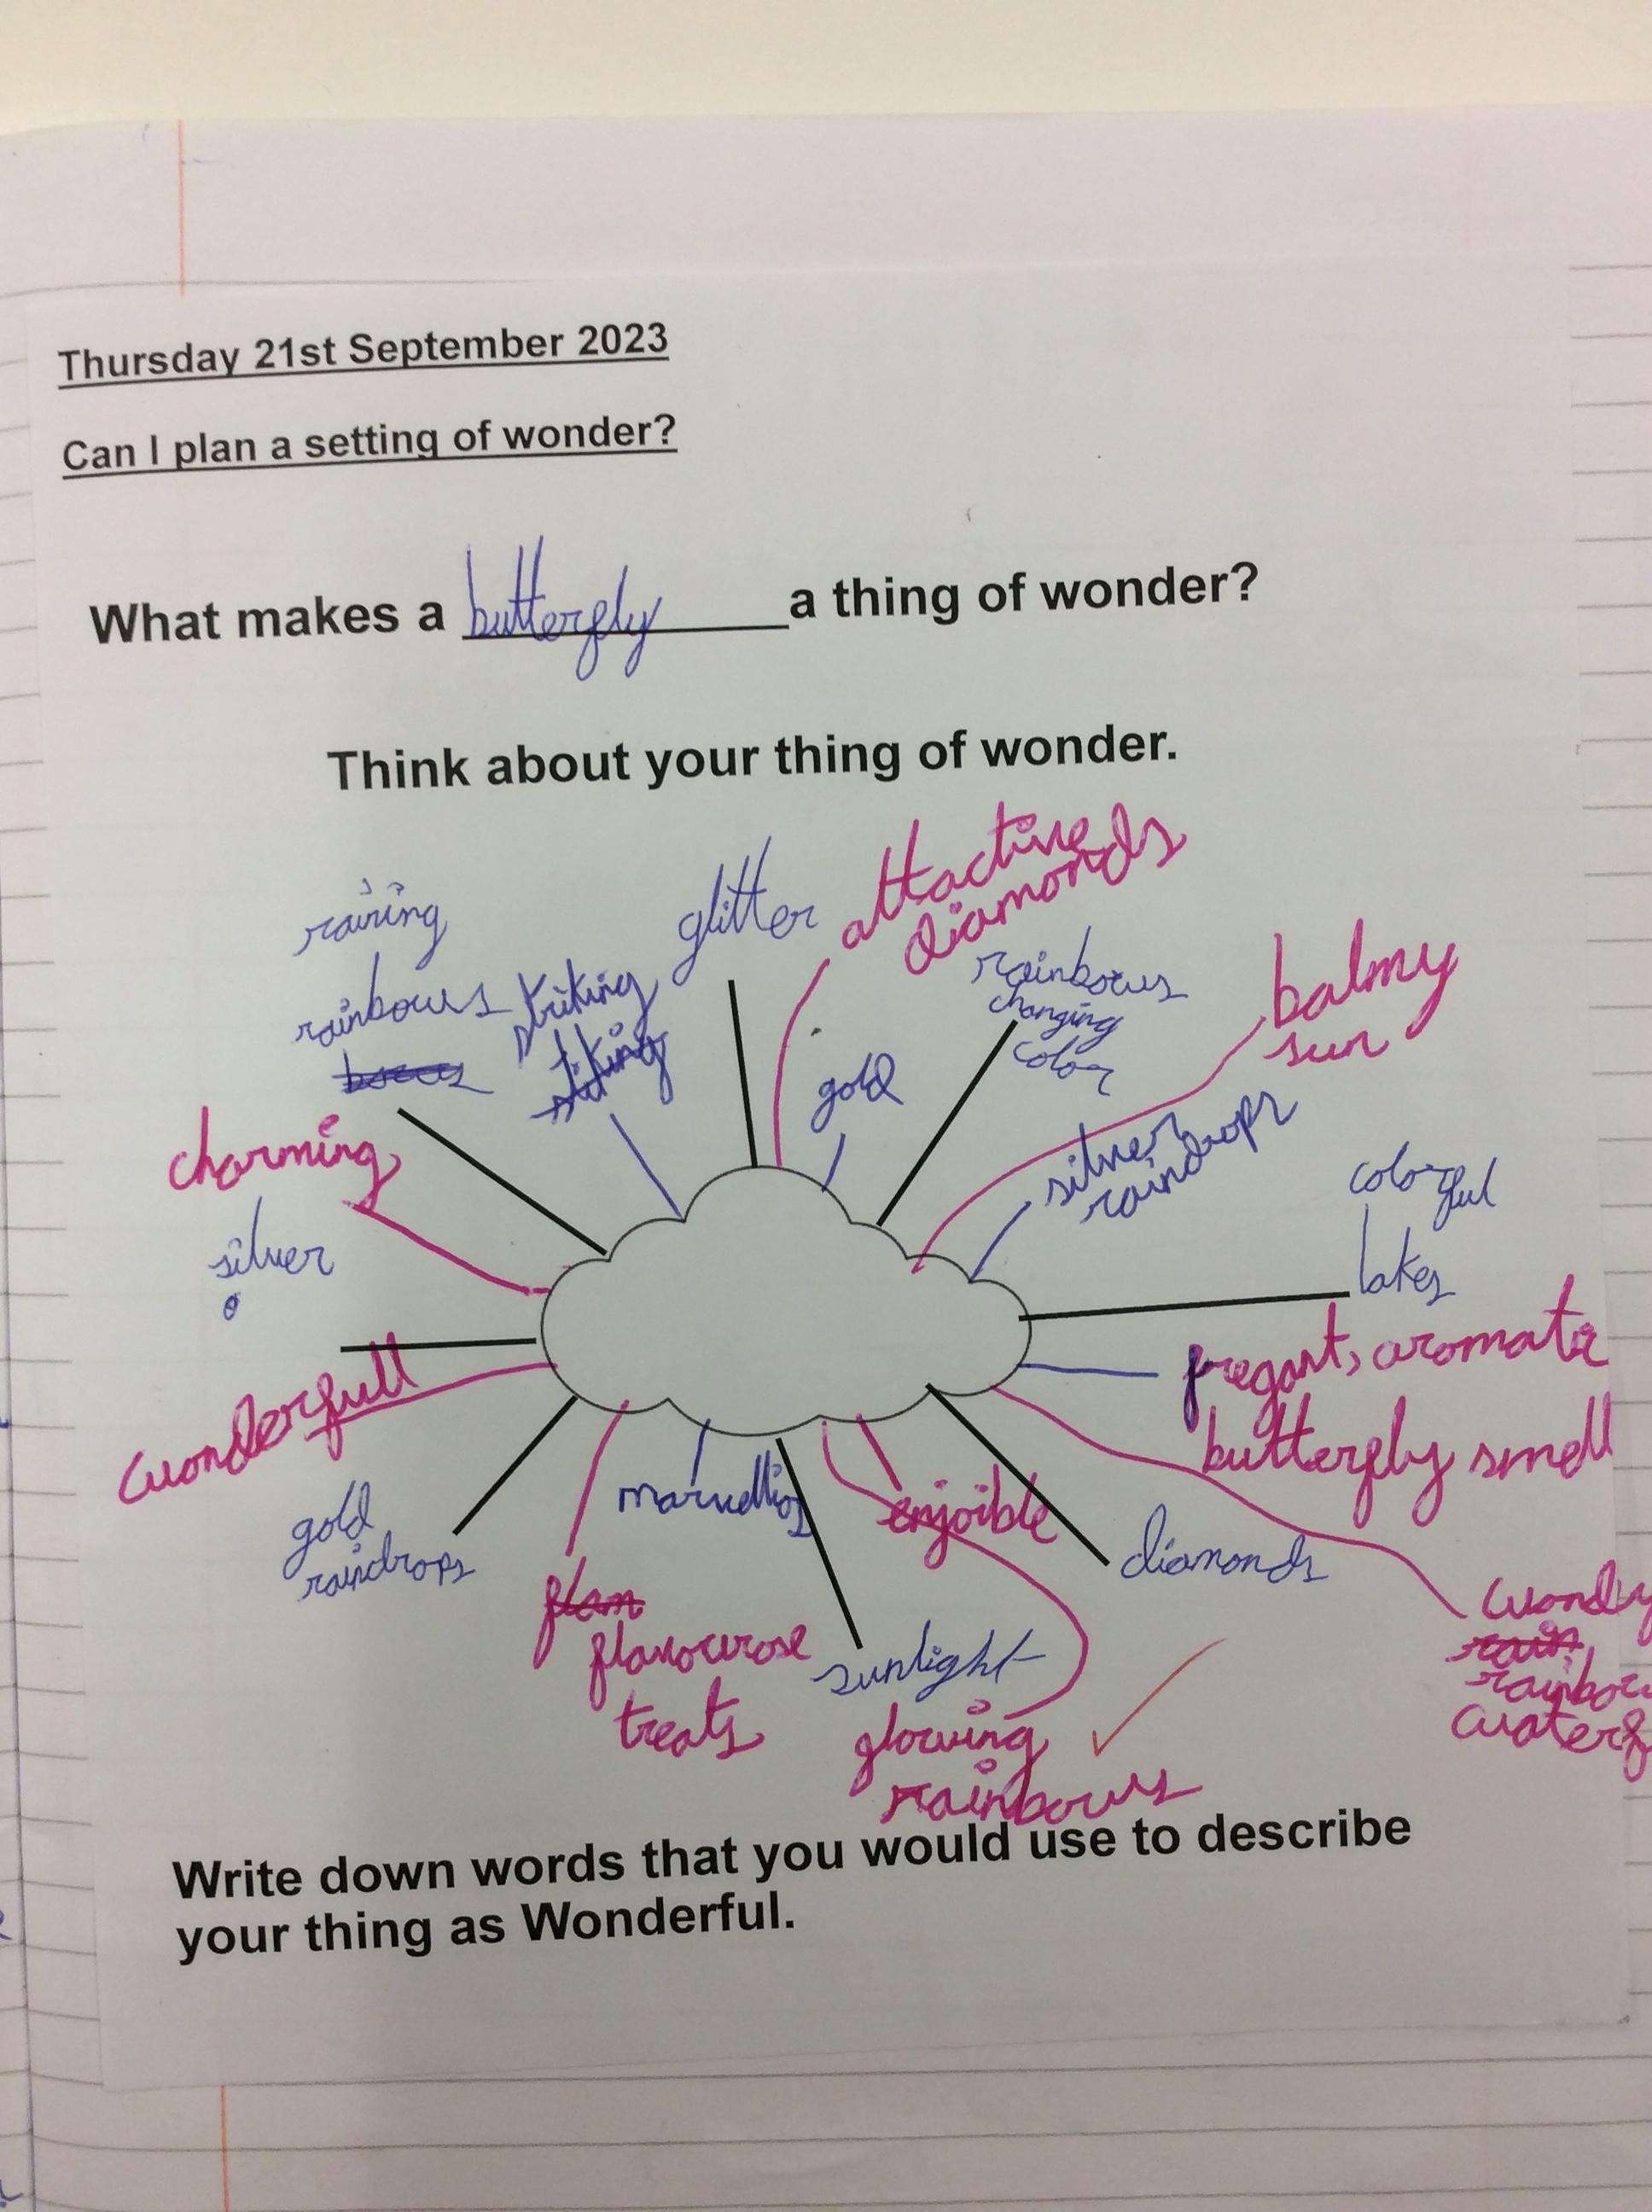 Thursday 21st September 2023
Can I plan a setting of wonder?
What makes a butterfly a thing of wonder?
Think about your thing of wonder.
raining
rainbows
striking
glitter
attactive
diamonds
gold
rainbows
changing
color
balmy
sun
silver
raindrops
colorful
lakes
charming
silver
wonderfull
fregant, aromatic
butterfly smell
gold
raindrops
marvellios
enjoible
diamonds
flavourose
treats
sunlight
glowing
rainbows
rainbow
waterf
Write down words that you would use to describe
your thing as Wonderful.